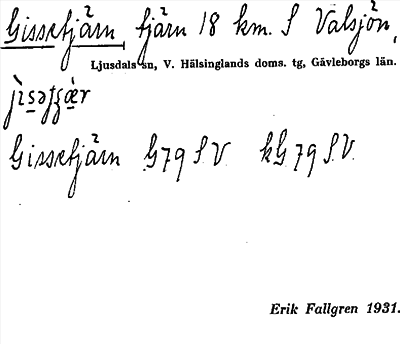 Gissetjärn tjärn 18 km. S Valsjön,
Ljusdals sn, V. Hälsinglands doms. tg, Gävleborgs län.
Gissetjärn G79 S.V. kG 79 S.V.
Erik Fallgren 1931.